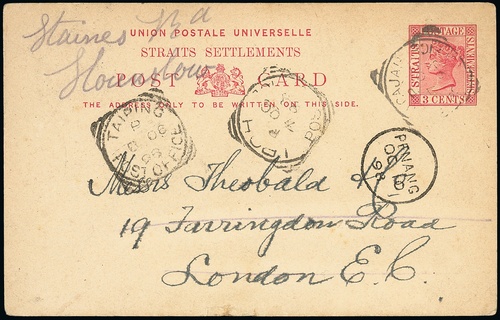 Staines Rd
Hounslow
UNION POSTALE UNIVERSELLE
STRAITS SETTLEMENTS
POST CARD
THE ADDRESS ONLY TO BE WRITTEN ON THIS SIDE.
STRAITS POSTAGE SETTLEMENTS
3 CENTS
KAJANG
TAIPING
POST OFFICE
IPOH
PENANG
OC
98
Messrs Theobald &
19 Farringdon Road
London E.C.